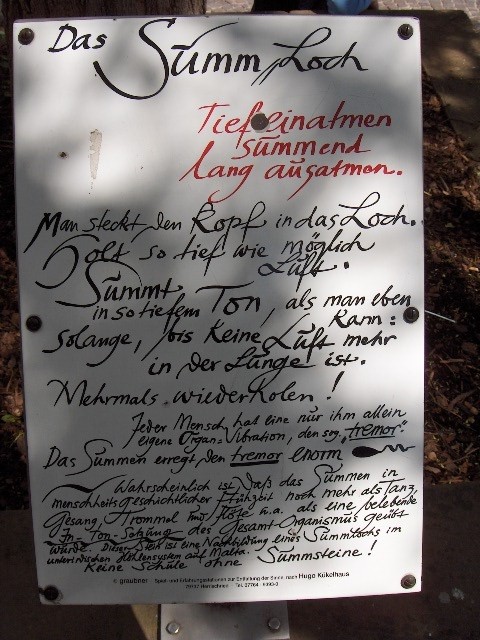 Das
Summ, Loch
Tief einatmen
summend
lang ausatmen.
Man steckt den Kopf in das Loch.
Holt so tief wie möglich
Luft.
Summt
in so tiefem Ton, als man eben
kann:
solange, bis keine Luft mehr
in der Lunge ist.
Mehrmals wiederholen!
Jeder Mensch hat eine nur ihm allein
eigene Organ=Vibration, den sog. "tremor"
Das Summen erregt den tremor enorm
Wahrscheinlich ist, daß das Summen in
menschheitsgeschichtlicher Frühzeit noch mehr als Tanz,
Gesang, Trommel und Flöte u.a. als eine belebende
In-Ton-Setzung des Gesamt-Organismus geübt
wurde. Dieser Stein ist eine Nachbildung eines Summlochs im
unterirdischen Höhlensystem auf Malta.
Keine Schule ohne Summsteine!
© graubner Spiel- und Erfahrungsstationen zur Entfaltung der Sinne, nach Hugo Kükelhaus
Herrischried Tel. 07764